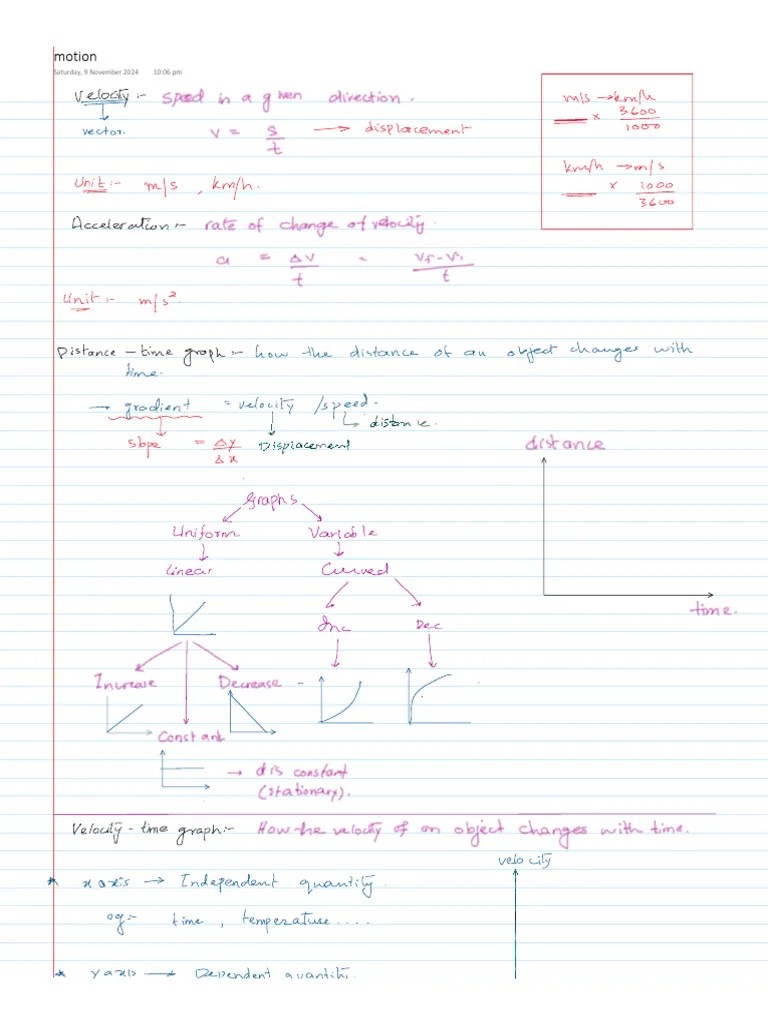 motion
Saturday, 9 November 2024 10:06 pm
Velocity :- speed in a given direction.
vector.
v = s/t → displacement
m/s → km/h
___ × 3600/1000
km/h → m/s
___ × 1000/3600
Unit :- m/s , km/h.
Acceleration :- rate of change of velocity.
a = Δv/t =
Unit :- m/s²
Distance - time graph :- how the distance of an object changes with
time.
→ gradient = velocity / speed.
distance.
slope = Δy/Δx Displacement
distance
time.
Graphs
Uniform Variable
Linear Curved
Inc Dec
Increase Decrease
Constant
→ dis constant
(stationary).
Velocity - time graph :- How the velocity of an object changes with time.
velocity
* x axis → Independent quantity
eg:- time , temperature ....
* y axis → Dependent quantity.